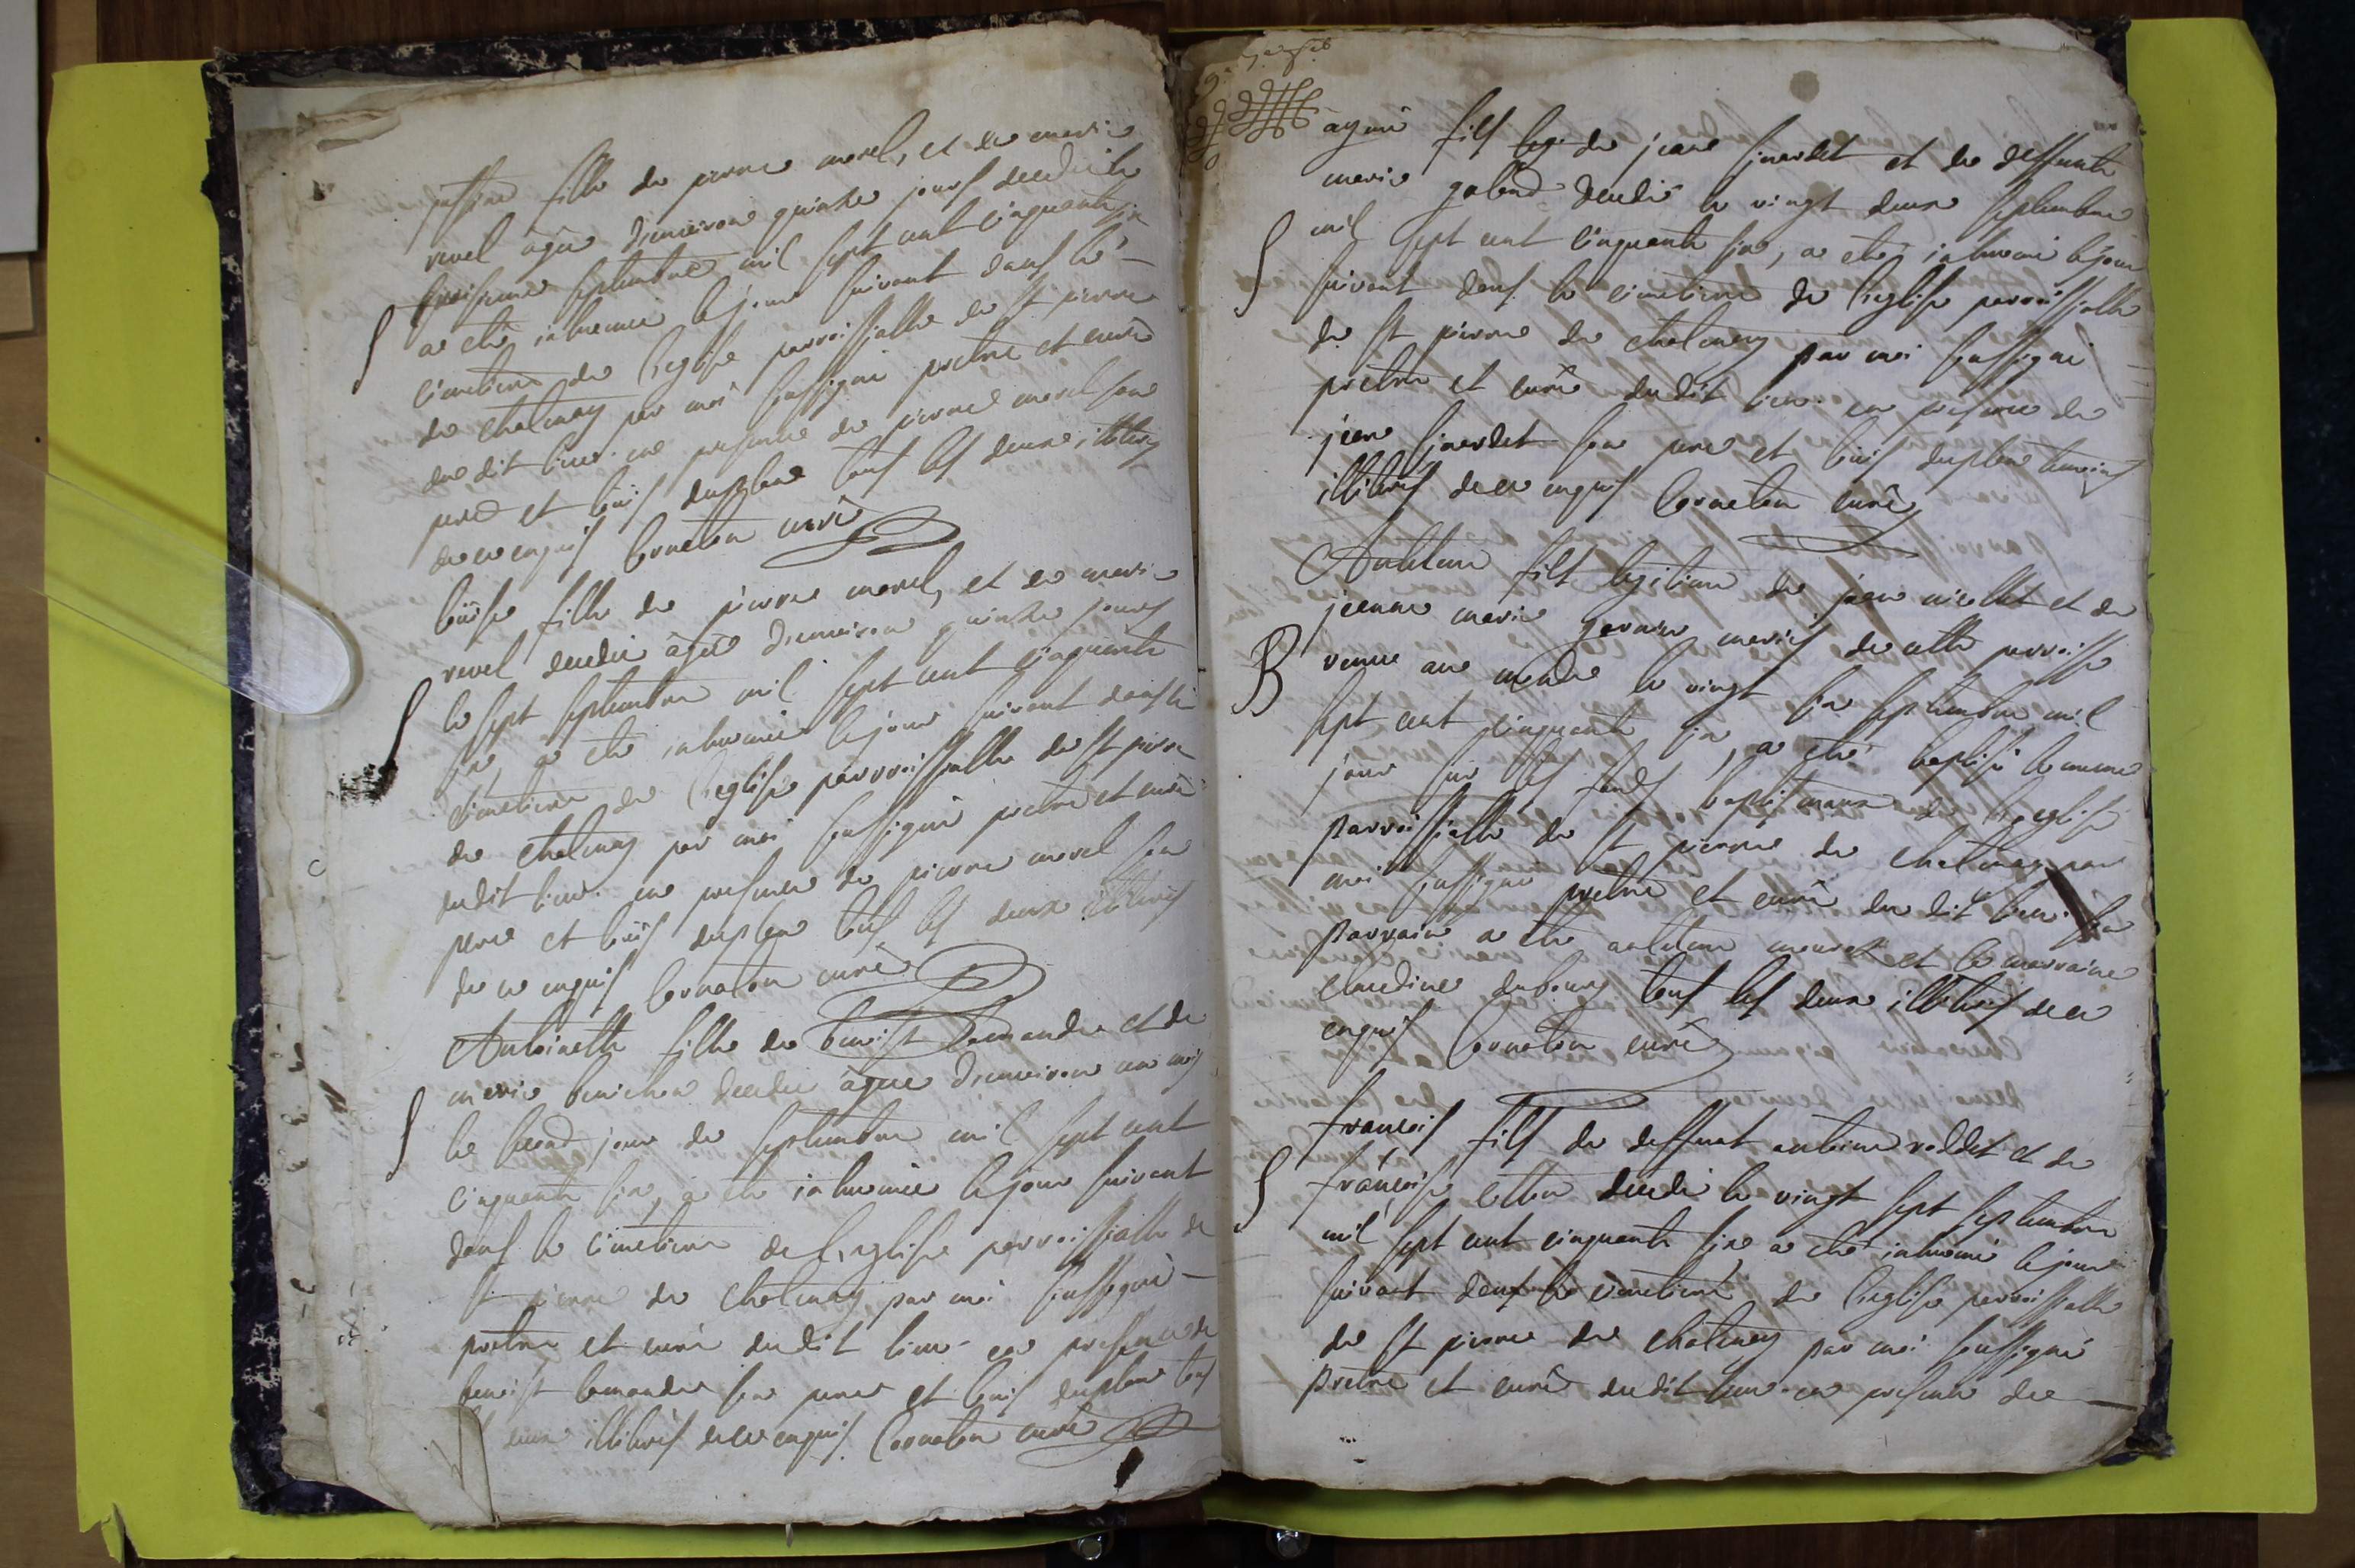 fille de pierre morel, et de marie
revel agée denviron quinze jours decedée le
troisieme septembre mil sept cent cinquante six
a eté inhumée le jour suivant dans le
cimetiere de l'eglise parroissialle de st pierre
de chalmay par moi soussigné pretre et curé
du dit lieu. en presence de pierre morel son
pere et loüis duplan tous les deux illiterés
de ce enquis Cornaton curé
loüise fille de pierre morel, et de marie
revel decedée agée denviron quinze jours
le sept septembre mil sept cent cinquante
six, a eté inhumée le jour suivant dans le
cimetiere de l'eglise parroissialle de st pierre
de chalmay par moi soussigné pretre et curé
dudit lieu. en presence de pierre morel son
pere et loüis duplan tous les deux illiterés
de ce enquis Cornaton curé
Antoinette fille de benoist lemandre et de
marie bonichon decedée agée denviron un mois
le second jour de septembre mil sept cent
cinquante six, a eté inhumée le jour suivant
dans le cimetiere de l'eglise parroissialle de
st pierre de chalmay par moi soussigné
pretre et curé dudit lieu. en presence de
benoist lemandre son pere et loüis duplan tous
les deux illiterés de ce enquis. Cornaton curé
aymé fils leg. de jean et de deffunte
marie decedé le vingt deux septembre
S mil sept cent cinquante six, a eté inhumé le jour
suivant dans le cimetiere de l'eglise parroissialle
de st pierre de chalmay par moi soussigné
pretre et curé dudit lieu. en presence de
jean son pere et loüis duplan temoins
illiterés de ce enquis Cornaton curé
Antoine fils legitime de jean micollet et de
jeanne marie garnier mariés de cette parroisse
B venu au monde le vingt six septembre mil
sept cent cinquante six, a eté baptisé le meme
jour sur les fonds baptismaux de l'eglise
parroissialle de st pierre de chalmay par
moi soussigné pretre et curé du dit lieu. son
parrain a eté antoine et la marraine
claudine dubourg tous les deux illiterés de ce
enquis Cornaton curé
françois fils de deffunt antoine roddet et de
S françoise decedé le vingt sept septembre
mil sept cent cinquante six a eté inhumé le jour
suivant dans le cimetiere de l'eglise parroissialle
de st pierre de chalmay par moi soussigné
pretre et curé dudit lieu. en presence de